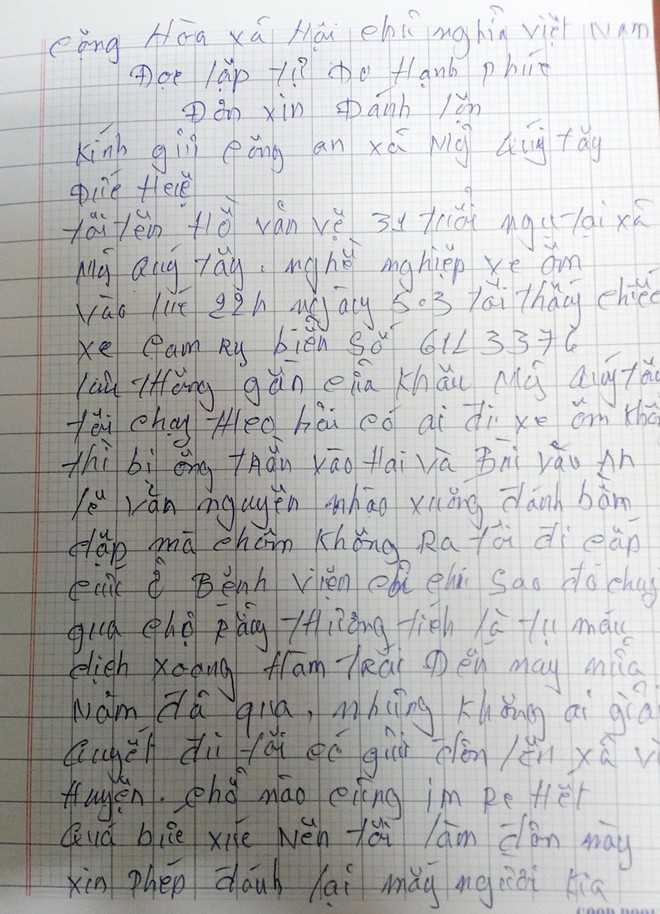 Cộng Hòa xã Hội chủ nghĩa việt Nam
Độc lập tự Do Hạnh phúc
Đơn xin Đánh lộn
Kính gửi công an xã Mỹ Quý tây
Đức Huệ
tôi tên Hồ văn vệ 31 tuổi ngụ tại xã
Mỹ Quý tây. nghề nghiệp xe ôm
vào lúc 22h ngày 5.3 tôi thấy chiếc
xe Cam Ry biển số 61L 3376
lưu thông gần cửa khẩu Mỹ Quý tây
tôi chạy theo hỏi có ai đi xe ôm khôn
thì bị ông trần vào Hai và Bùi văn An
lê văn nguyên nhào xuống đánh bầm
dập mà chôm không Ra tôi đi cấp
cứu ở Bệnh viện chi chi sao đó chạy
qua chợ Rẫy thương tích là tụ máu
dịch xoang Hàm trái Đến nay nửa
Năm đã qua, nhưng không ai giải
Quyết dù tôi có gửi đơn lên xã và
Huyện. chỗ nào cũng im Re Hết
Quá bức xúc Nên tôi làm đơn này
xin phép đánh lại mấy người kia